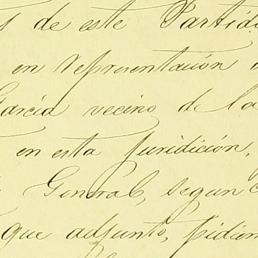 de este Partido
en representación
García vecino de la
en esta juridición,
General, segun
que adjunto, pidien